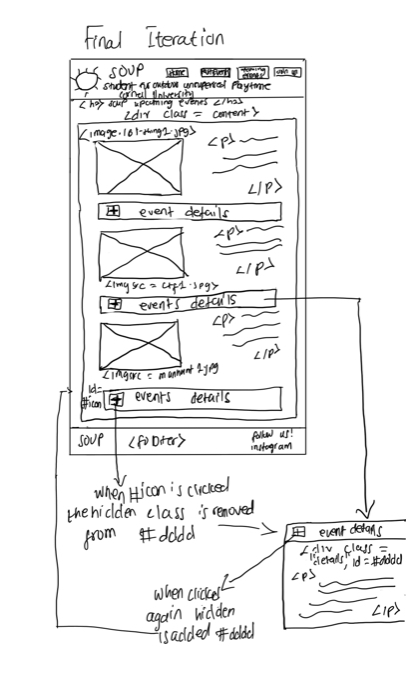 Final Iteration
SOUP
Home
student
ununiversal Playtime
Cornell University
<h2> soup upcoming events </h2>
<div class = content>
<p>
</p>
event details
<p>
</p>
<img src = ctf1.jpg>
events details
<p>
</p>
id=
#icon
events details
SOUP
<footer>
follow us!
instagram
when #icon is clicked
the hidden class is removed
from #dddd
event details
<div class =
details, id = #dddd
<p>
</p>
when clicked
again hidden
is added #dddd